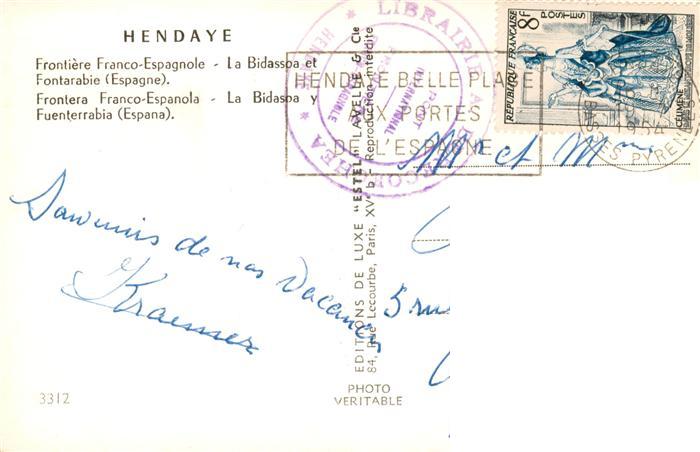 HENDAYE
Frontière Franco-Espagnole - La Bidassoa et
Fontarabie (Espagne).
Frontera Franco-Espanola - La Bidasoa y
Fuenterrabia (Espana).
Souvenirs de nos Vacances
Kraemer
3312
EDITIONS DE LUXE "ESTEL" LAVELLE & Cie
84, Rue Lecourbe, Paris, XVe b - Reproduction interdite
PHOTO
VERITABLE
LIBRAIRIE
INTERNATIONAL
HENDAYE BELLE PLAGE
AUX PORTES
DE L'ESPAGNE
8F
POSTES
REPUBLIQUE FRANÇAISE
CELIMENE
1954
BASSES PYRENEES
M et Mme
5 rue